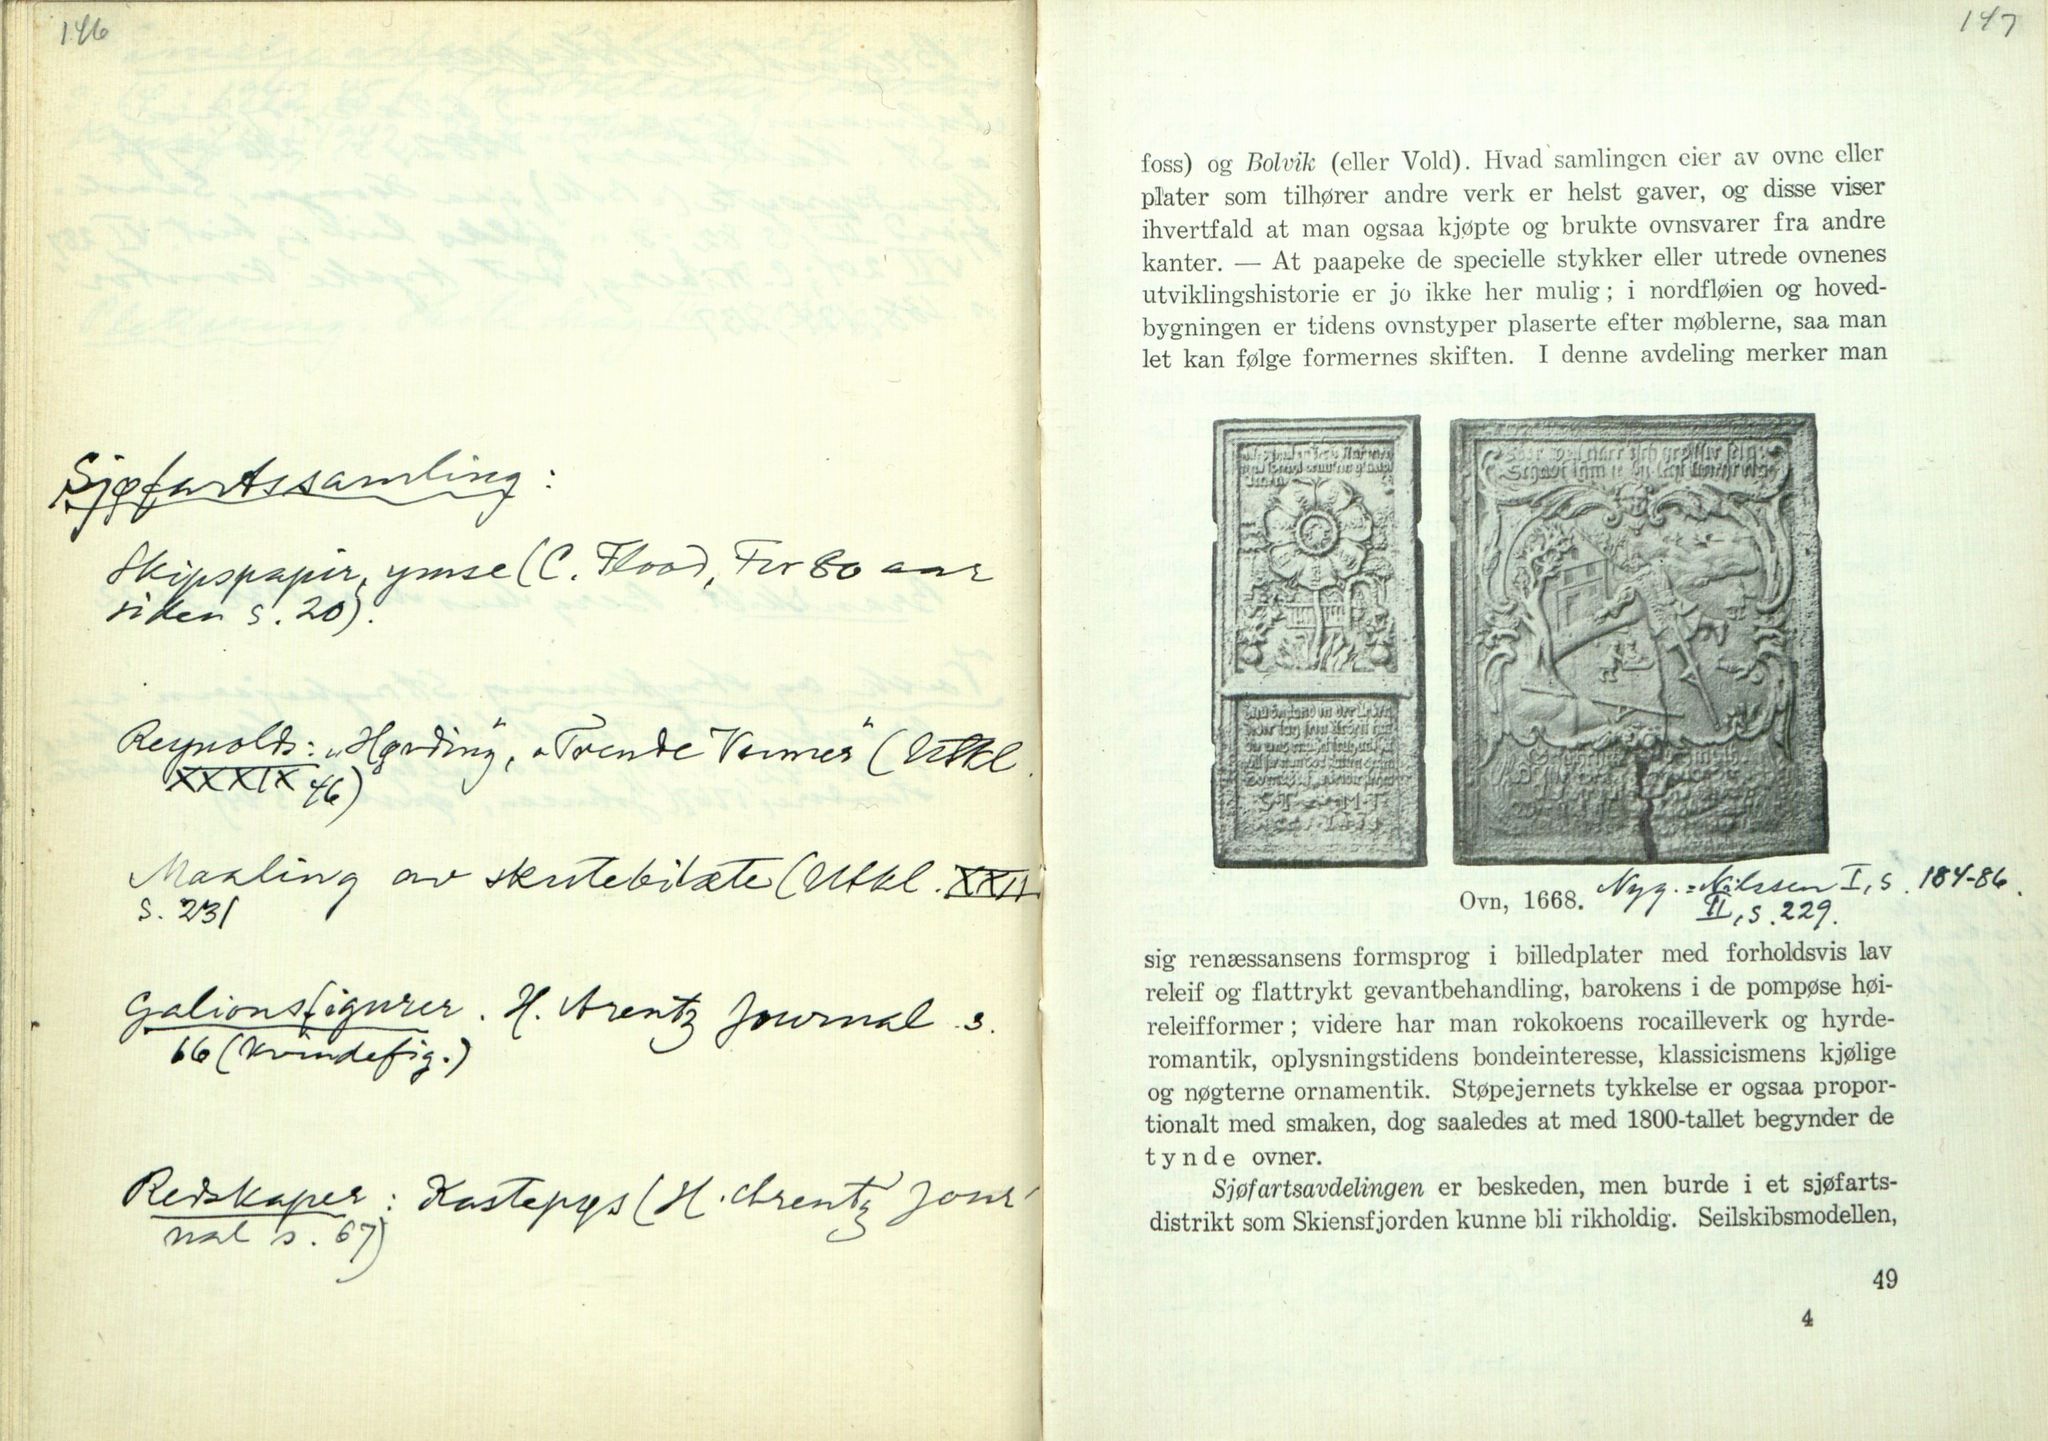 146
Sjøfartssamling:
Skipspapir, ymse (C. Flood, For 80 aar
siden s. 20).
Reynolds: „Hørding", „Trende Venner" (Utkl.
XXXIX 46)
Maaling av skutebilæte (Utkl. XXII
s. 231
Galionsfigurer. H. Arentz Journal s.
66 (Kvindefig.)
Redskaper: Kastepys (H. Arentz Jour-
nal s. 67)
147
foss) og Bolvik (eller Vold). Hvad samlingen eier av ovne eller
plater som tilhører andre verk er helst gaver, og disse viser
ihvertfald at man ogsaa kjøpte og brukte ovnsvarer fra andre
kanter. — At paapeke de specielle stykker eller utrede ovnenes
utviklingshistorie er jo ikke her mulig; i nordfløien og hoved-
bygningen er tidens ovnstyper plaserte efter møblerne, saa man
let kan følge formernes skiften. I denne avdeling merker man
Ovn, 1668. Nyg.=Nilssen I, s. 184-86.
II, s. 229.
sig renæssansens formsprog i billedplater med forholdsvis lav
releif og flattrykt gevantbehandling, barokens i de pompøse høi-
releifformer; videre har man rokokoens rocailleverk og hyrde-
romantik, oplysningstidens bondeinteresse, klassicismens kjølige
og nøgterne ornamentik. Støpejernets tykkelse er ogsaa propor-
tionalt med smaken, dog saaledes at med 1800-tallet begynder de
tynde ovner.
Sjøfartsavdelingen er beskeden, men burde i et sjøfarts-
distrikt som Skiensfjorden kunne bli rikholdig. Seilskibsmodellen,
49
4